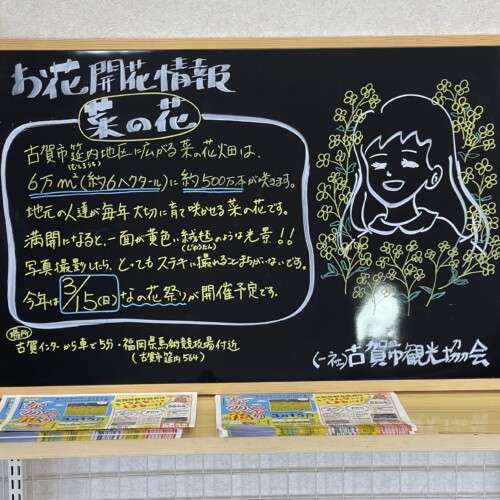 お花開花情報
菜の花
古賀市筵内地区に広がる菜の花畑は、
(むしろうち)
6万㎡(約6ヘクタール)に約500万本が咲きます。
地元の人達が毎年大切に育て咲かせる菜の花です。
満開になると、一面が黄色い絨毯のような光景!!
(じゅうたん)
写真撮影したら、とってもステキに撮れることまちがいないです。
今年は3/15(日)なの花祭りが開催予定です。
場所
古賀インターから車で5分・福岡県馬術競技場付近
(古賀市筵内564)
(一社)古賀市観光協会